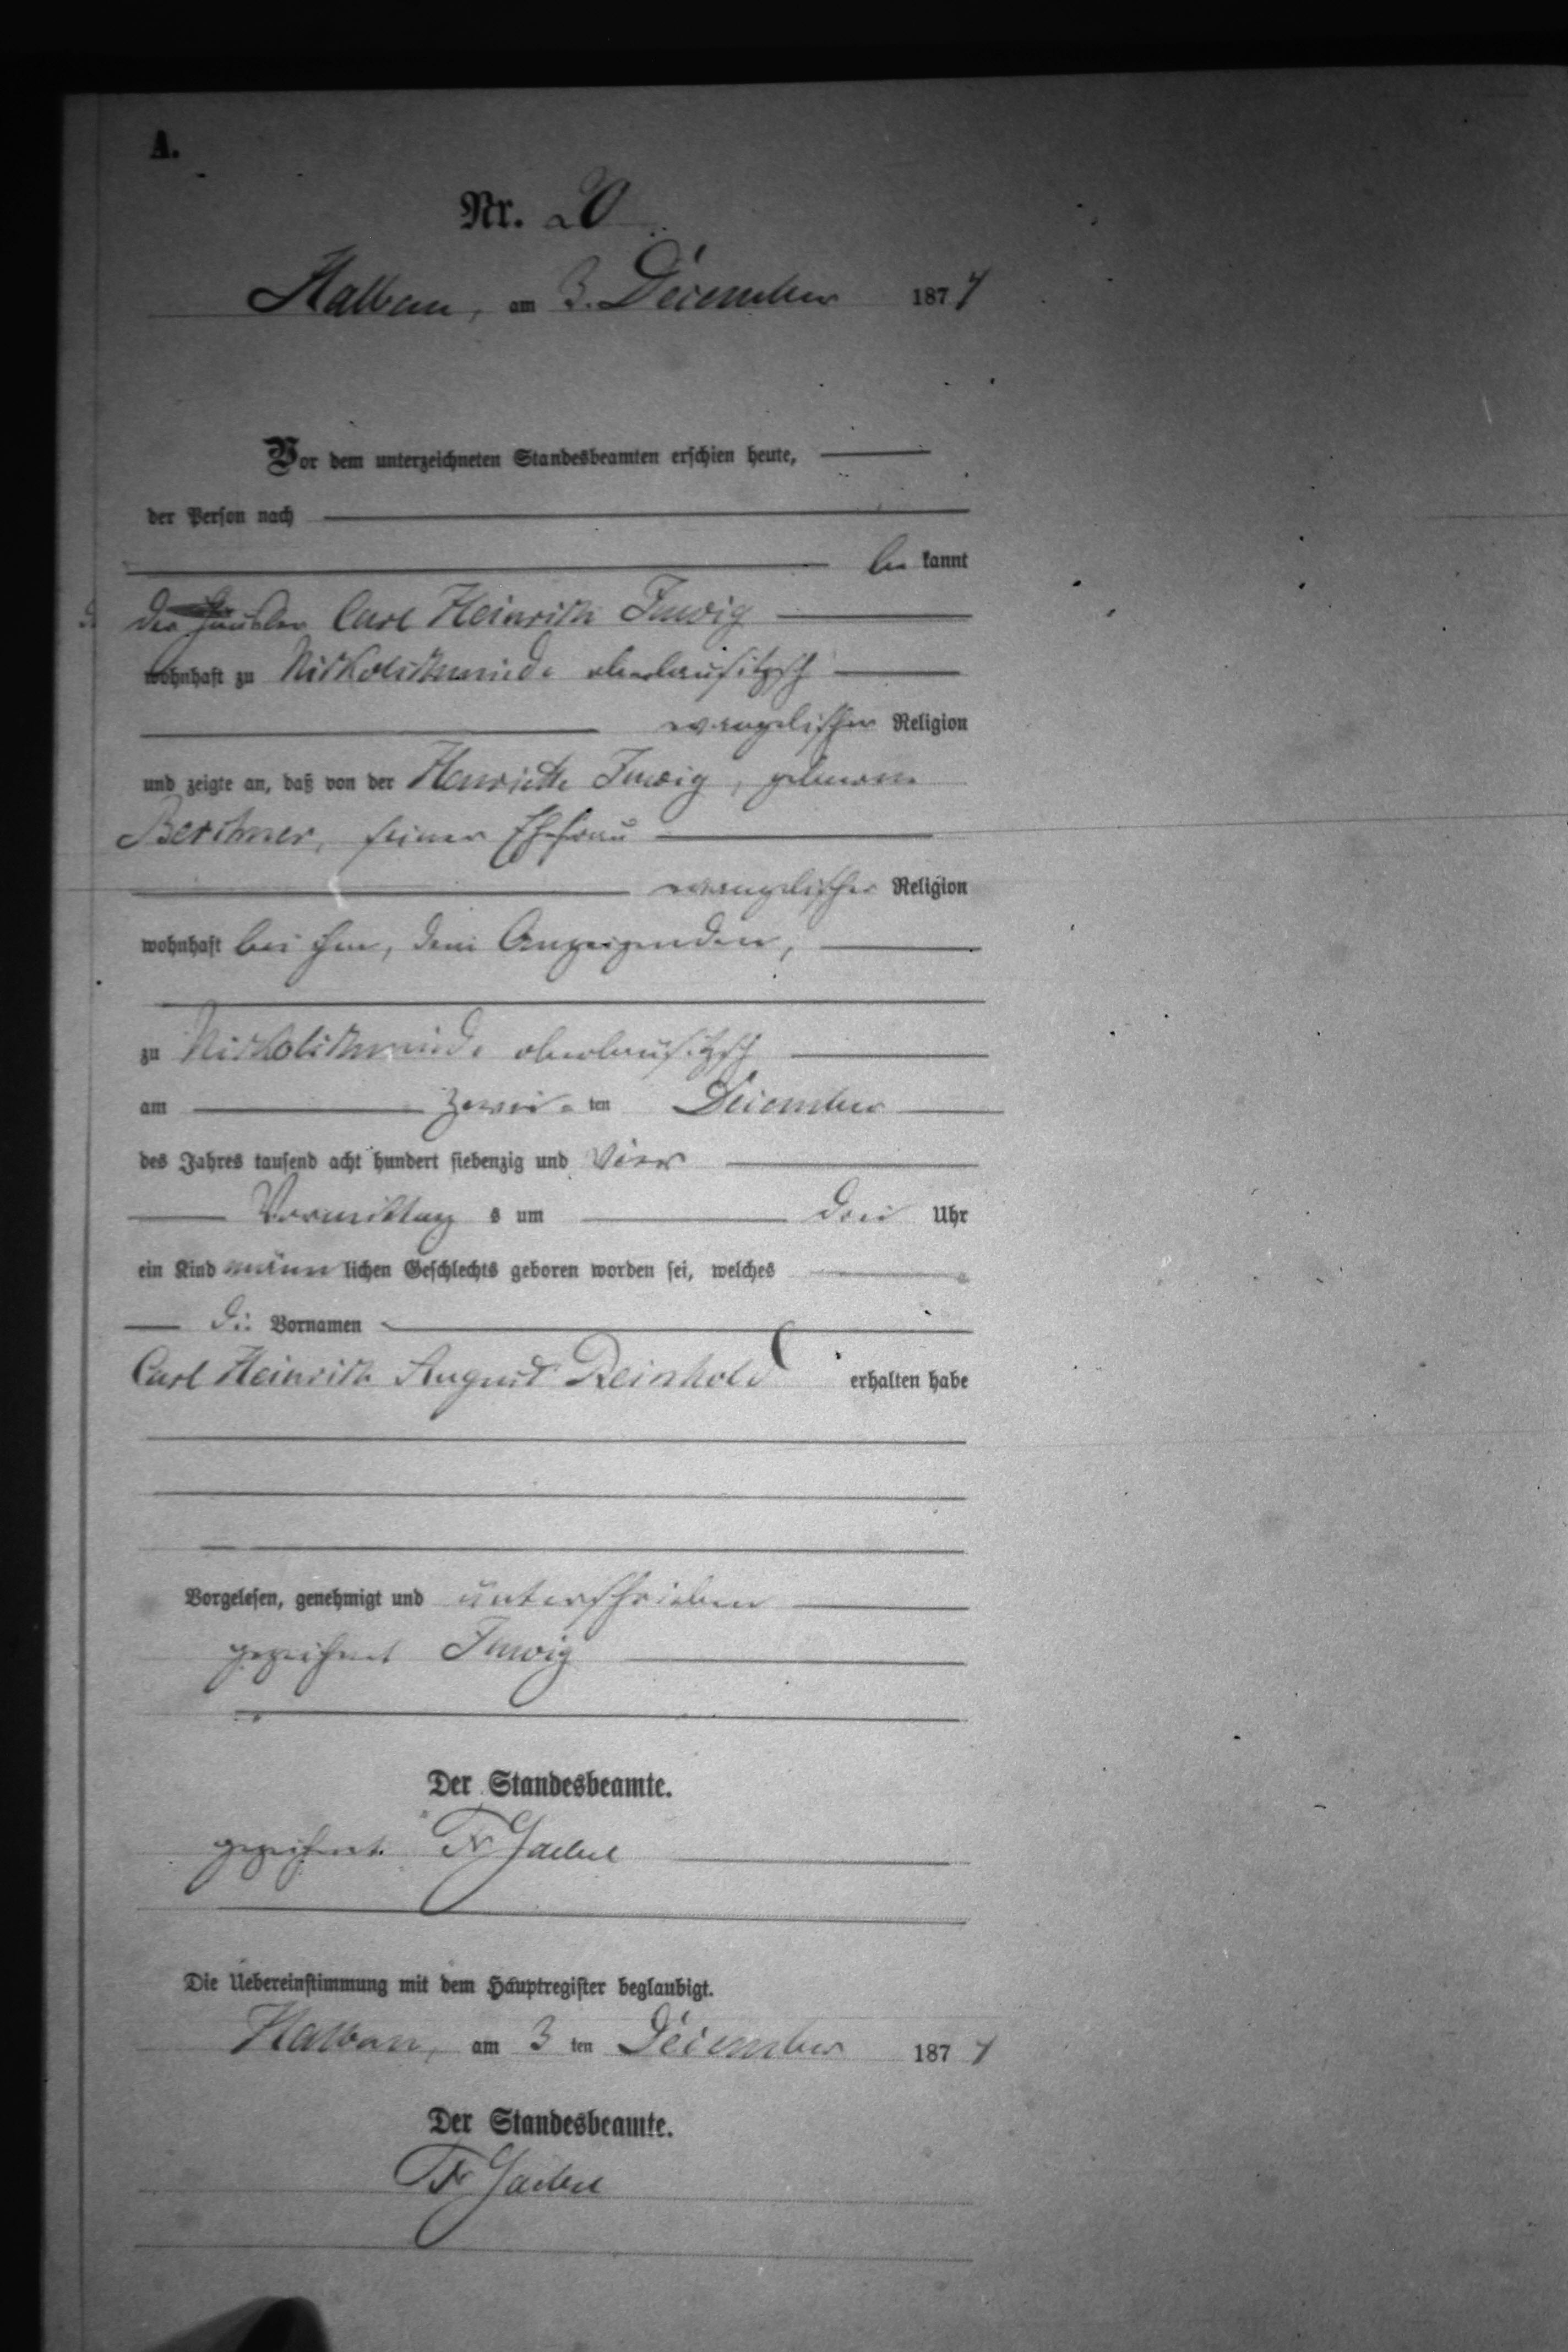 A.
Nr. 20
Halbau, am 3. December 1874
Vor dem unterzeichneten Standesbeamten erschien heute,
der Person nach
be kannt
der Häusler Carl Heinrich
wohnhaft zu Nikolschmiede oberlausitzsch
evangelischer Religion
und zeigte an, daß von der Henriette, geborene
seiner Ehefrau
evangelischer Religion
wohnhaft bei ihm, dem Anzeigenden,
zu Nikolschmiede oberlausitzsch
am zwei ten December
des Jahres tausend acht hundert siebenzig und vier
Vormittag s um drei Uhr
ein Kind männ lichen Geschlechts geboren worden sei, welches
die Vornamen
Carl Heinrich August Reinhold erhalten habe
Vorgelesen, genehmigt und unterschrieben
gezeichnet
Der Standesbeamte.
gezeichnet
Die Uebereinstimmung mit dem Hauptregister beglaubigt.
Halbau, am 3 ten December 1874
Der Standesbeamte.